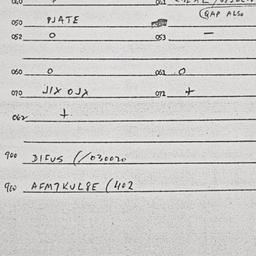 060 061
(QAP ALSO
050 PJATE
052 O 053 —
060 O 061 O
070 JIX OJX 072 +
062 +
900 DIEUS (/030020
960 AFM7KUL8E (402